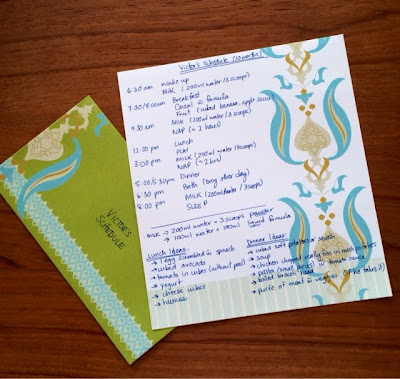 Victor's Schedule (10 months)
6:30 am Wake up
Milk (200ml water/3 scoops)
7:30/8:00am Breakfast
Cereal w formula
Fruit (cubed banana, apple sauce)
9:30 am Milk (200ml water/3 scoops)
NAP (~ 2 hours)
12:00 pm Lunch
PLAY
3:00 pm Milk (200ml water/3 scoops)
NAP (~2 hrs)
5:00/5:30pm Dinner
6:30 pm Bath (every other day)
8:00 pm Milk (200ml water/3 scoops)
SLEEP
Milk → 200ml water + 3 scoops powder
→ 100ml water + 100ml liquid formula
Lunch Ideas:
→ 1 egg scrambled w spinach
→ cubed avocado
→ tomato in cubes (without peel)
→ yogurt
→ cheese cubes
→ hummus
Dinner Ideas:
→ cubed soft potatoes or squash
→ soup
→ chicken chopped really fine in mash potatoes
→ pasta (small pieces) w tomato sauce
→ boiled broccoli head
→ purée of meat w veggies (if he takes it)
VICTOR'S
SCHEDULE